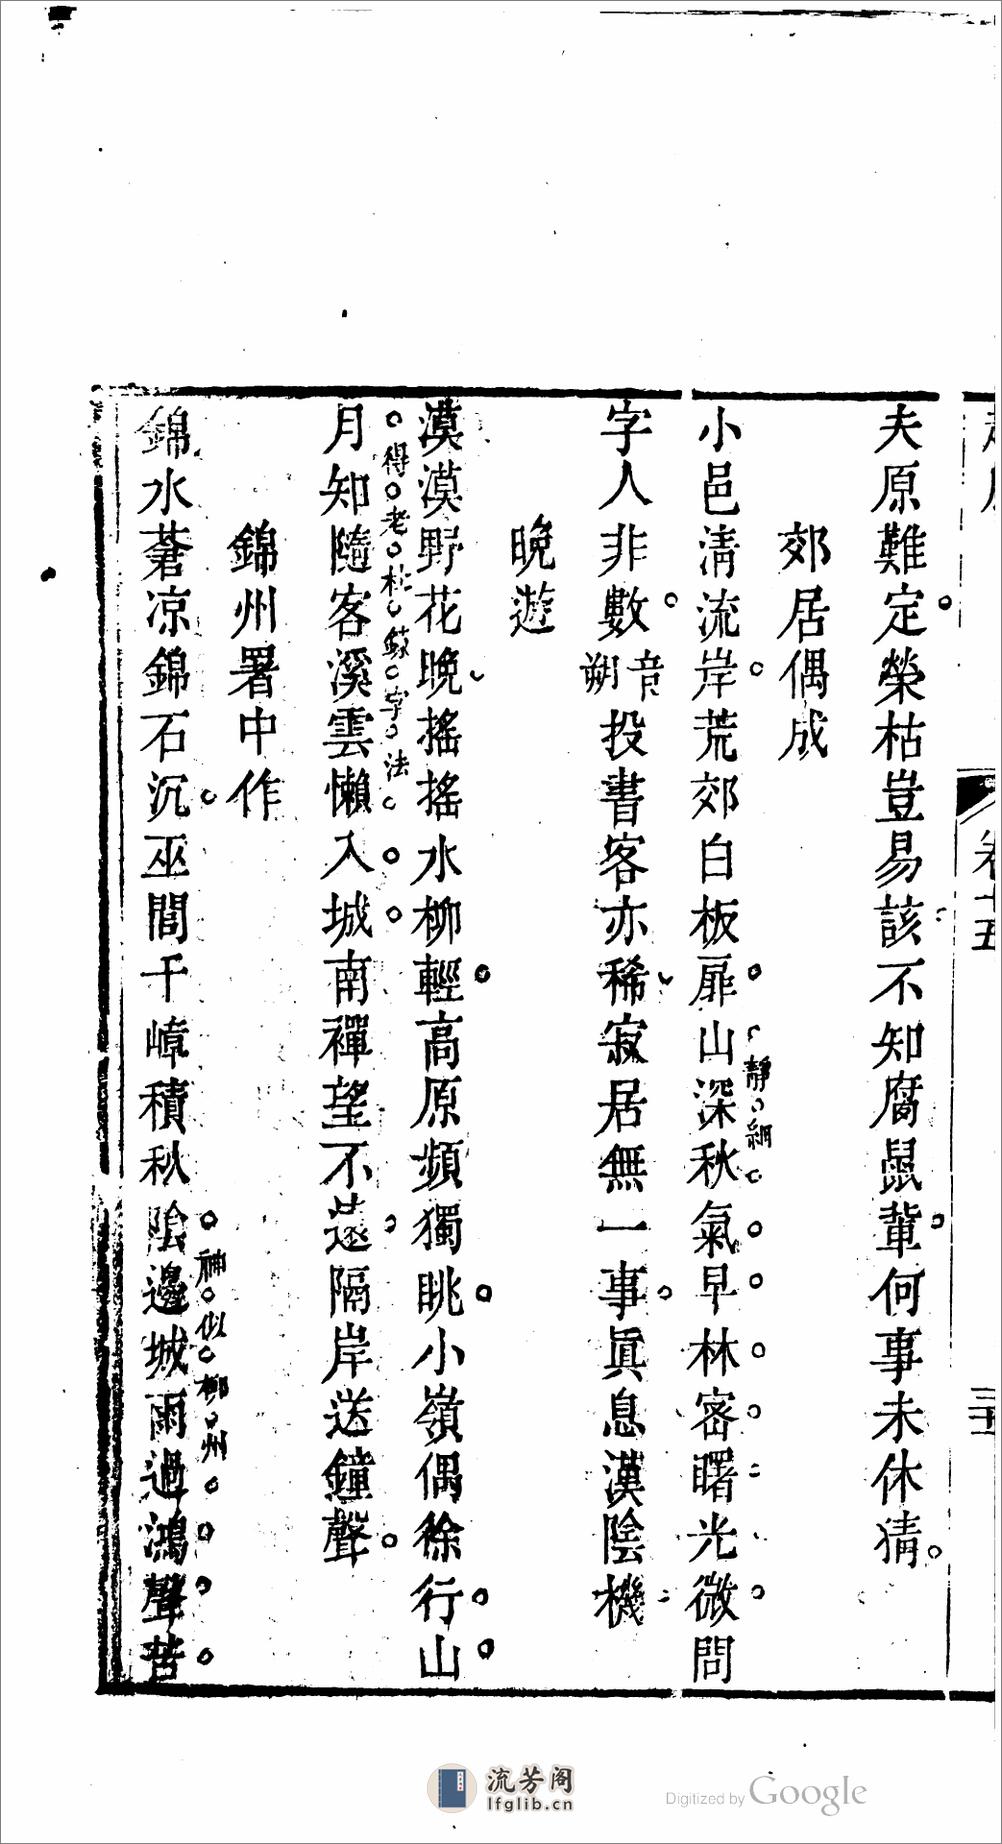 卷十五
夫原難定榮枯豈易該不知腐鼠輩何事未休猜
郊居偶成
小邑清流岸荒郊白板扉山深秋氣早林密曙光微問
靜細
字人非數音朔投書客亦稀寂居無一事眞息漢陰機
晚遊
漠漠野花晚搖搖水柳輕高原頻獨眺小嶺偶徐行山
得老杜蘇字法
月知隨客溪雲懶入城南禪望不遠隔岸送鐘聲
錦州署中作
錦水蒼凉錦石沉巫閭千嶂積秋陰邊城雨過鴻聲苦
神似柳州
流芳阁
lfglib.cn
Digitized by Google